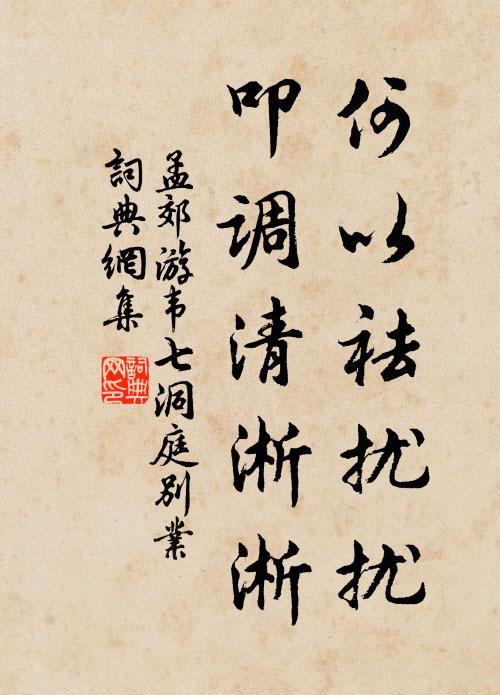 何以祛扰扰
叩调清淅淅
孟郊游韦七洞庭别業
詞典網集
詞典网印